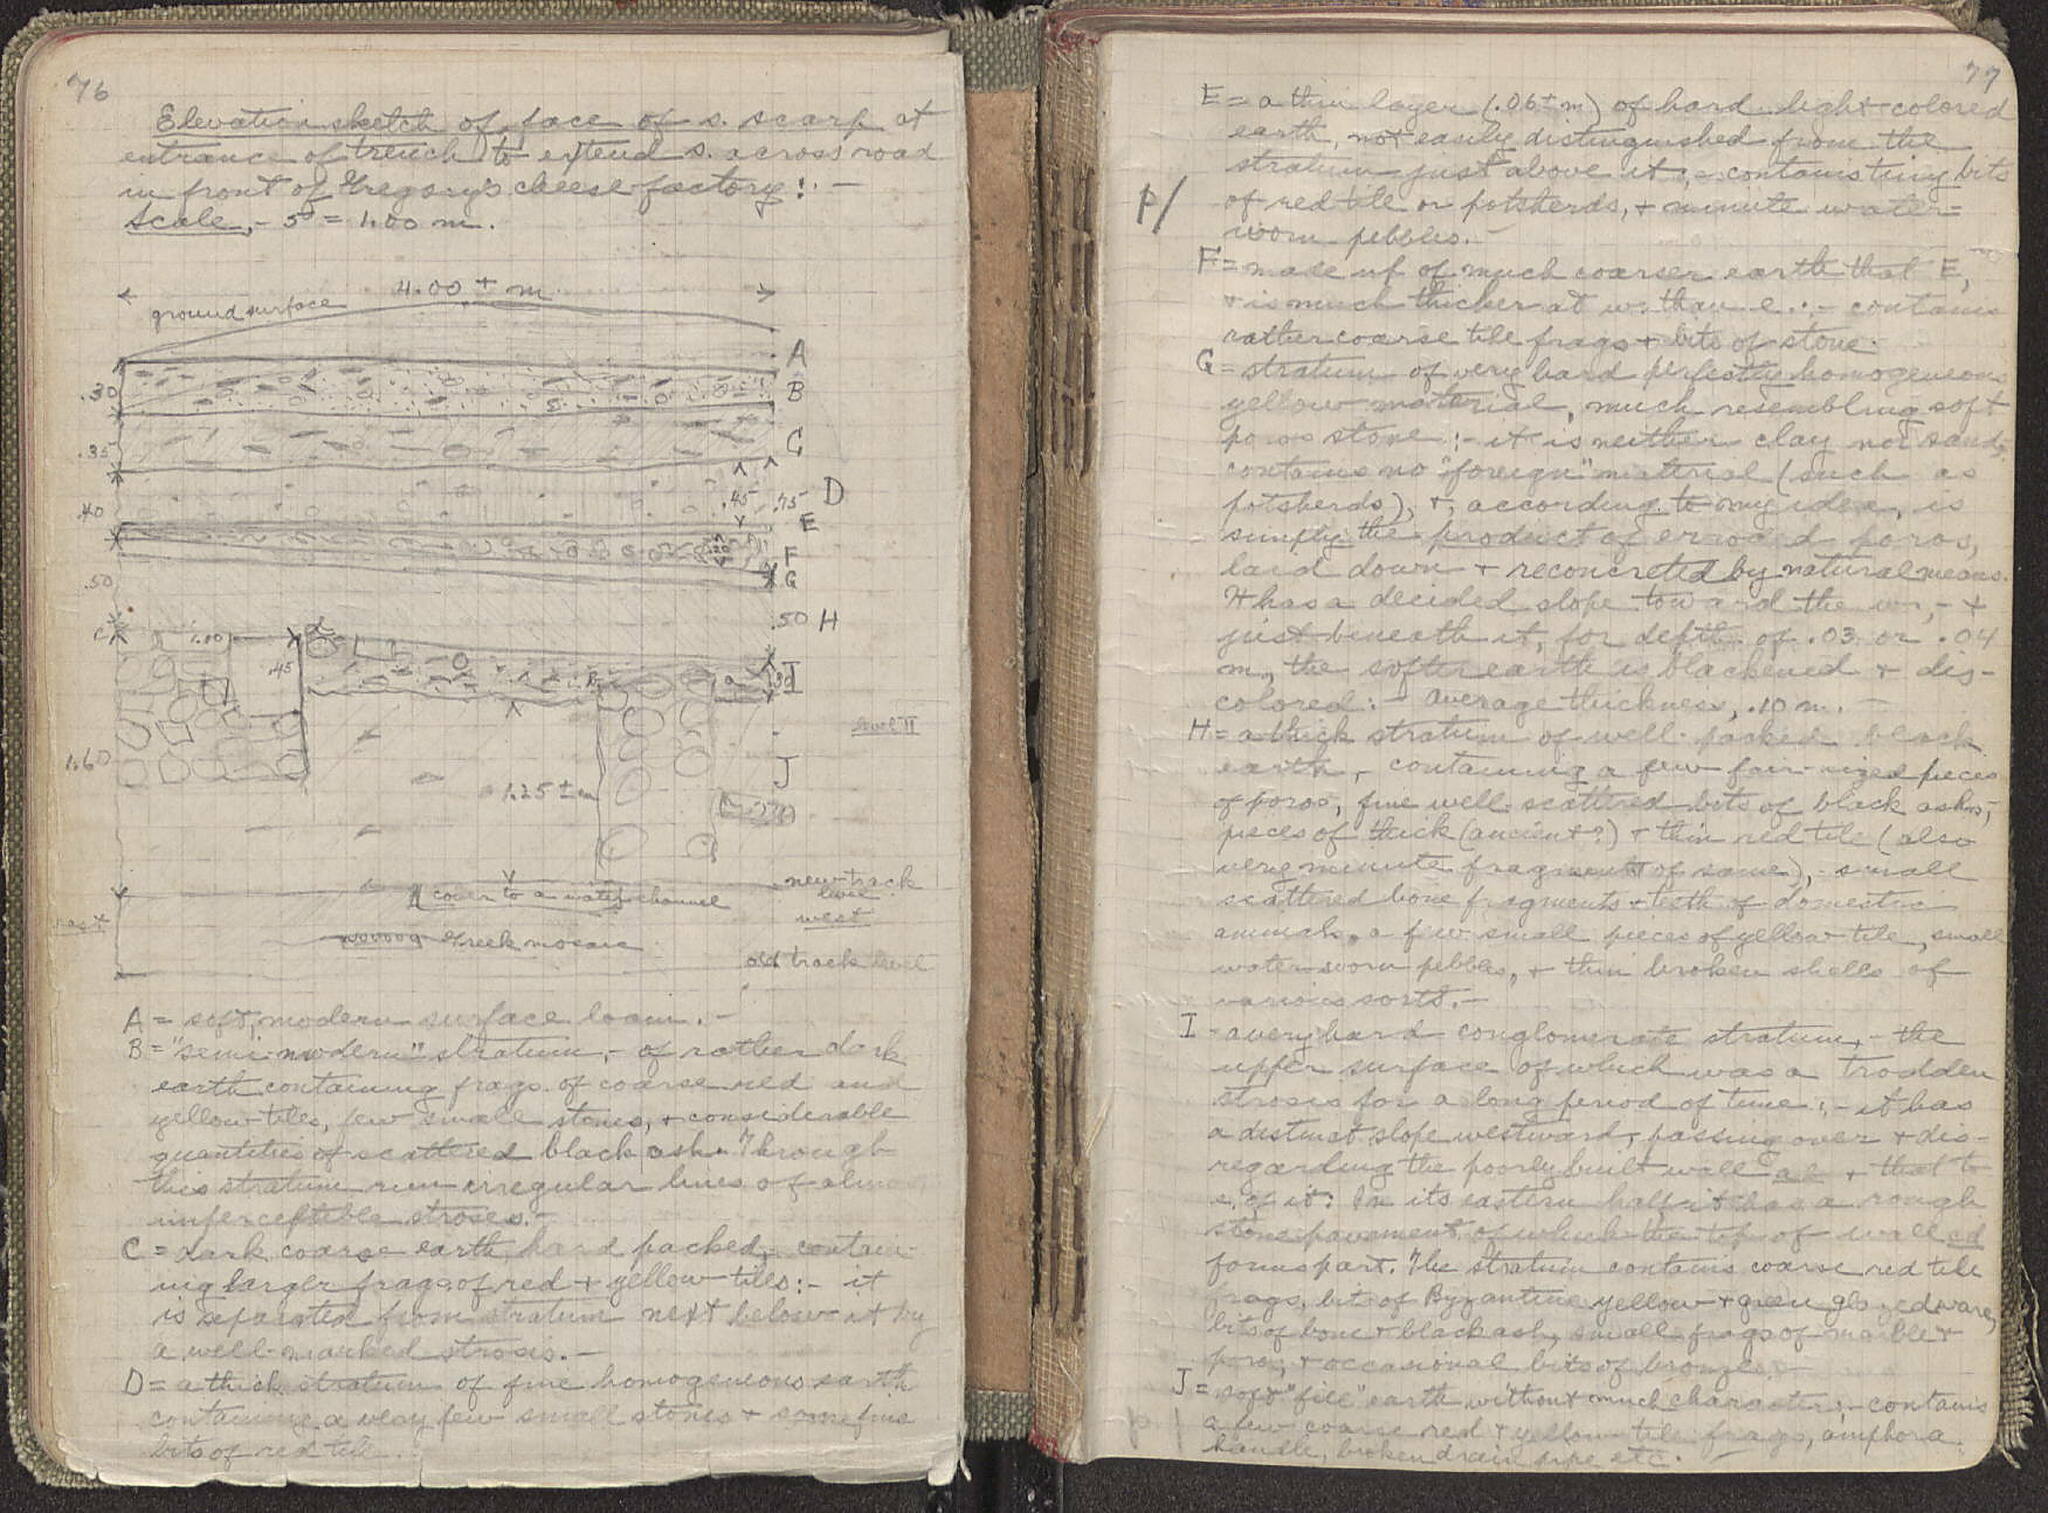 76
Elevation sketch of face of s. scarp at
entrance of trench to extend s. across road
in front of Gregory's cheese factory: -
Scale, - 5 = 1.00 m.
4.00 ± m
ground surface
A
.30
B
C
.35
.45
.75
D
.40
E
.20
F
G
.50
.50
H
c
d
1.00
.45
b
a
.30
I
level II
1.60
J
1.25 ± m
new track
level
cover to a water channel
east
west
Greek mosaic
old track level
A = soft, modern surface loam. -
B = "semi-modern" stratum, - of rather dark
earth containing frags. of coarse red and
yellow tiles, few small stones, + considerable
quantities of scattered black ash. Through
this stratum run irregular lines of almost
imperceptible stroses. -
C = dark coarse earth, hard packed, - contain-
ing larger frags. of red + yellow tiles: - it
is separated from stratum next below it by
a well-marked strosis. -
D = a thick stratum of fine homogeneous earth
containing a very few small stones + some fine
bits of red tile.
77
E = a thin layer (.06 ± m) of hard light-colored
earth, not easily distinguished from the
stratum just above it; - contains tiny bits
P/
of red tile or potsherds, + minute water-
worn pebbles. -
F = made up of much coarser earth that E,
+ is much thicker at w. than e.: - contains
rather coarse tile frags + bits of stone.
G = stratum of very hard perfectly homogeneous
yellow material, much resembling soft
poros stone: - it is neither clay nor sand,
contains no "foreign" material (such as
potsherds), +, according to my idea, is
simply the product of erroded poros,
laid down + reconcreted by natural means.
It has a decided slope toward the w., - +
just beneath it, for depth of .03 or .04
m., the softer earth is blackened + dis-
colored: - average thickness, .10 m. -
H = a thick stratum of well-packed black
earth, - containing a few fair-sized pieces
of poros, fine well-scattered bits of black ash,
pieces of thick (ancient?) + thin red tile (also
very minute fragments of same), - small
scattered bone fragments + teeth of domestic
animals, a few small pieces of yellow tile, small
water-worn pebbles, + thin broken shells of
various sorts. -
I = a very hard conglomerate stratum, - the
upper surface of which was a trodden
strosis for a long period of time: - it has
a distinct slope westward, passing over + dis-
regarding the poorly built wall ab + that to
e. of it: In its eastern half it has a rough
stone pavement of which the top of wall cd
forms part. The stratum contains coarse red tile
frags, bits of Byzantine yellow + green glazed ware,
bits of bone + black ash, small frags of marble +
poros, + occasional bits of bronze. -
J = soft "fill" earth without much character: - contains
a few coarse red + yellow tile frags, amphora
handle, broken drain pipe etc. -